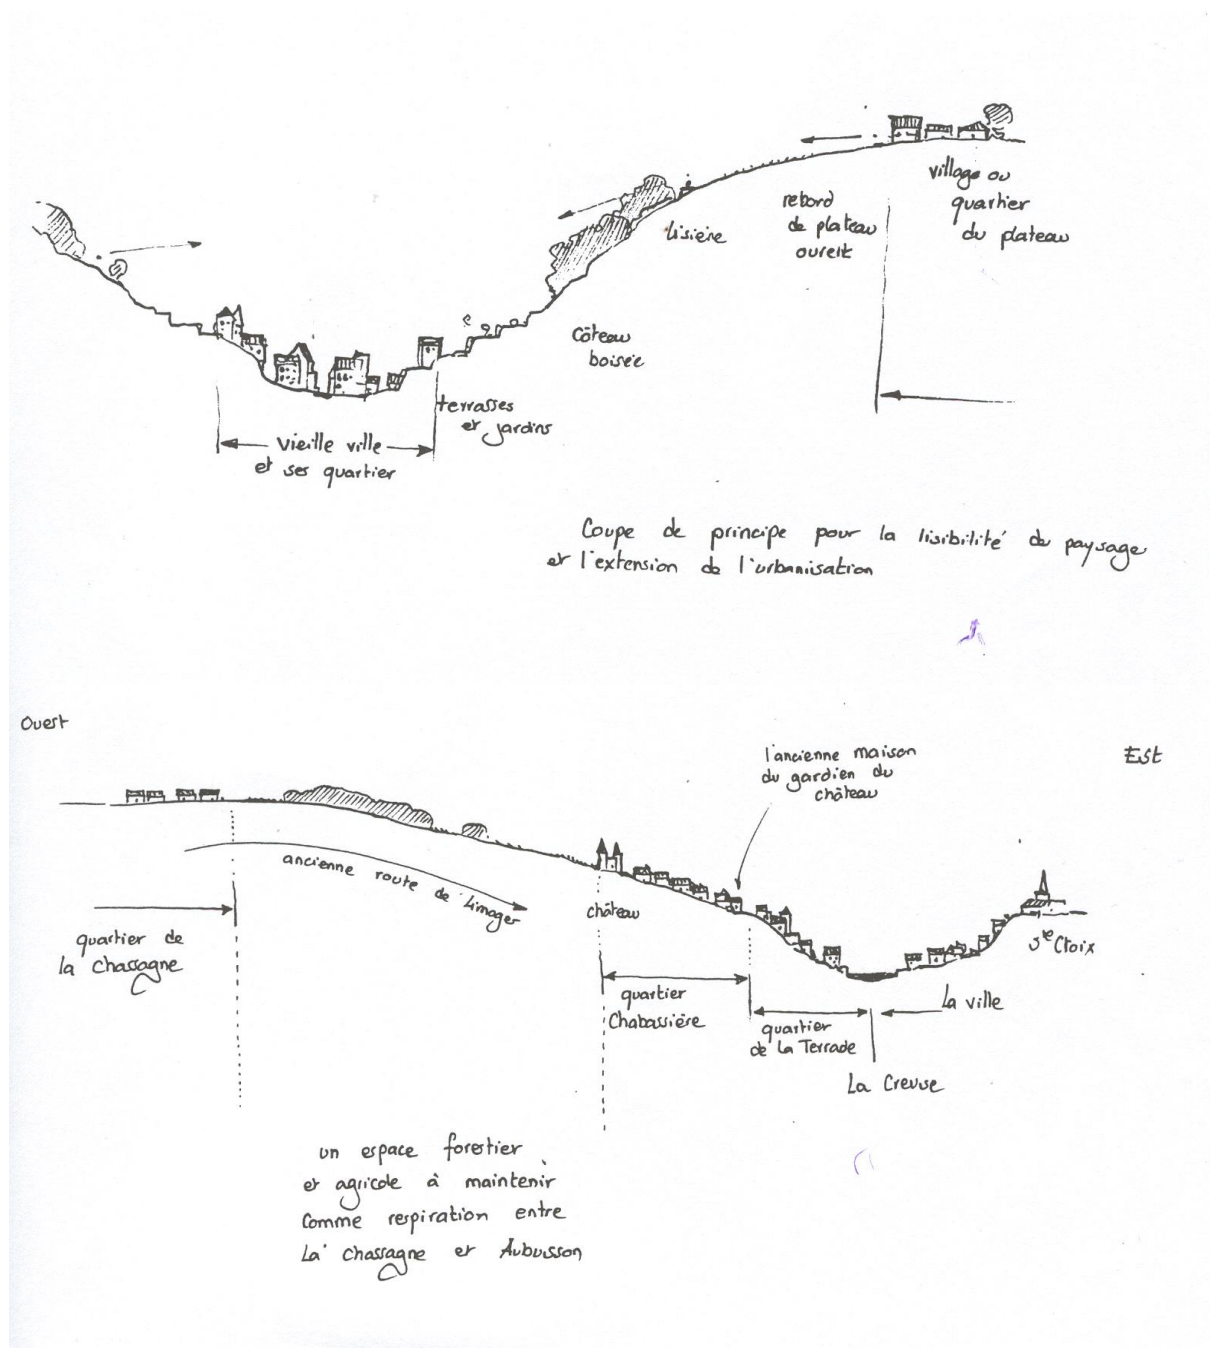 village ou
quartier
du plateau
rebord
de plateau
ouvert
lisière
Côteau
boisée
terrasses
et jardins
Vieille ville
et ses quartier
Coupe de principe pour la lisibilité du paysage
et l'extension de l'urbanisation
Ouest
Est
l'ancienne maison
du gardien du
château
ancienne route de Limoges
château
quartier de
la Chassagne
Ste Croix
quartier
Chabassière
La ville
quartier
de la Terrade
La Creuse
un espace forestier
et agricole à maintenir
comme respiration entre
La Chassagne et Aubusson